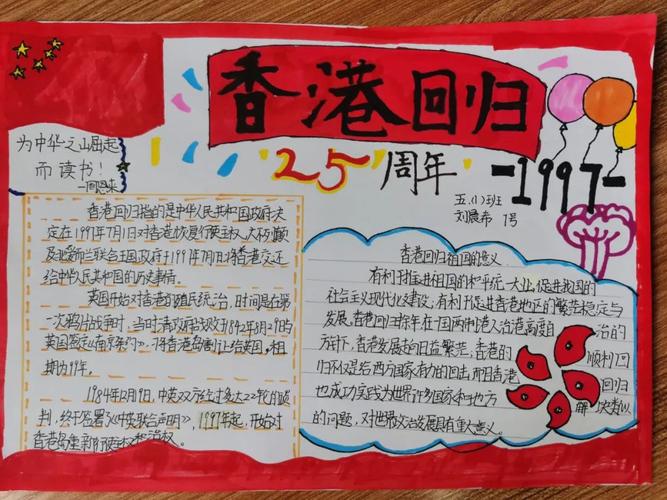 香港回归
25周年
-1997-
五.(1)班
刘晨希 1号
为中华之山屈起
而读书!
一周恩来
香港回归指的是中华人民共和国政府决
定在1997年7月1日对香港恢复行使主权,大不列颠
及北爱尔兰联合王国政府于1997年7月1日将香港交还
给中华人民共和国的历史事情.
英国开始对香港的殖民统治,时间是在第
一次鸦片战争时,当时清政府战败1842年8月29日的
英国签定《南京条约》.将香港岛割让给英国,租
期为99年.
1984年12月19日,中英双方经过多达22轮的谈
判,终于签署《中英联合声明》,1997年起,开始对
香港岛重新行使权
香港回归祖国的意义
有利于推进祖国的和平统一大业,促进我国的
社会主义现代化建设,有利于促进香港地区的繁荣稳定与
发展.香港回归后在一国两制港人治港高度自治的
方针下,香港发展起的日益繁荣,香港的顺利回
归不仅是给西方国家有力的回击,而且香港回归
也成功实践为世界许多国家和地方解决类似
的问题,对世界政治发展具有重大意义.